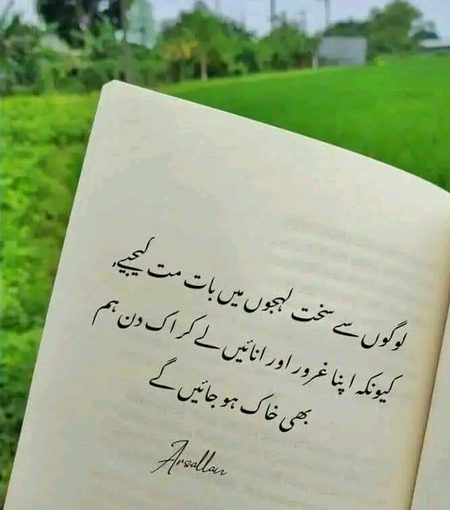 لوگوں سے سخت لہجوں میں بات مت کیجیے،
کیونکہ اپنا غرور اور انائیں لے کر اک دن ہم
بھی خاک ہو جائیں گے
Arsallan